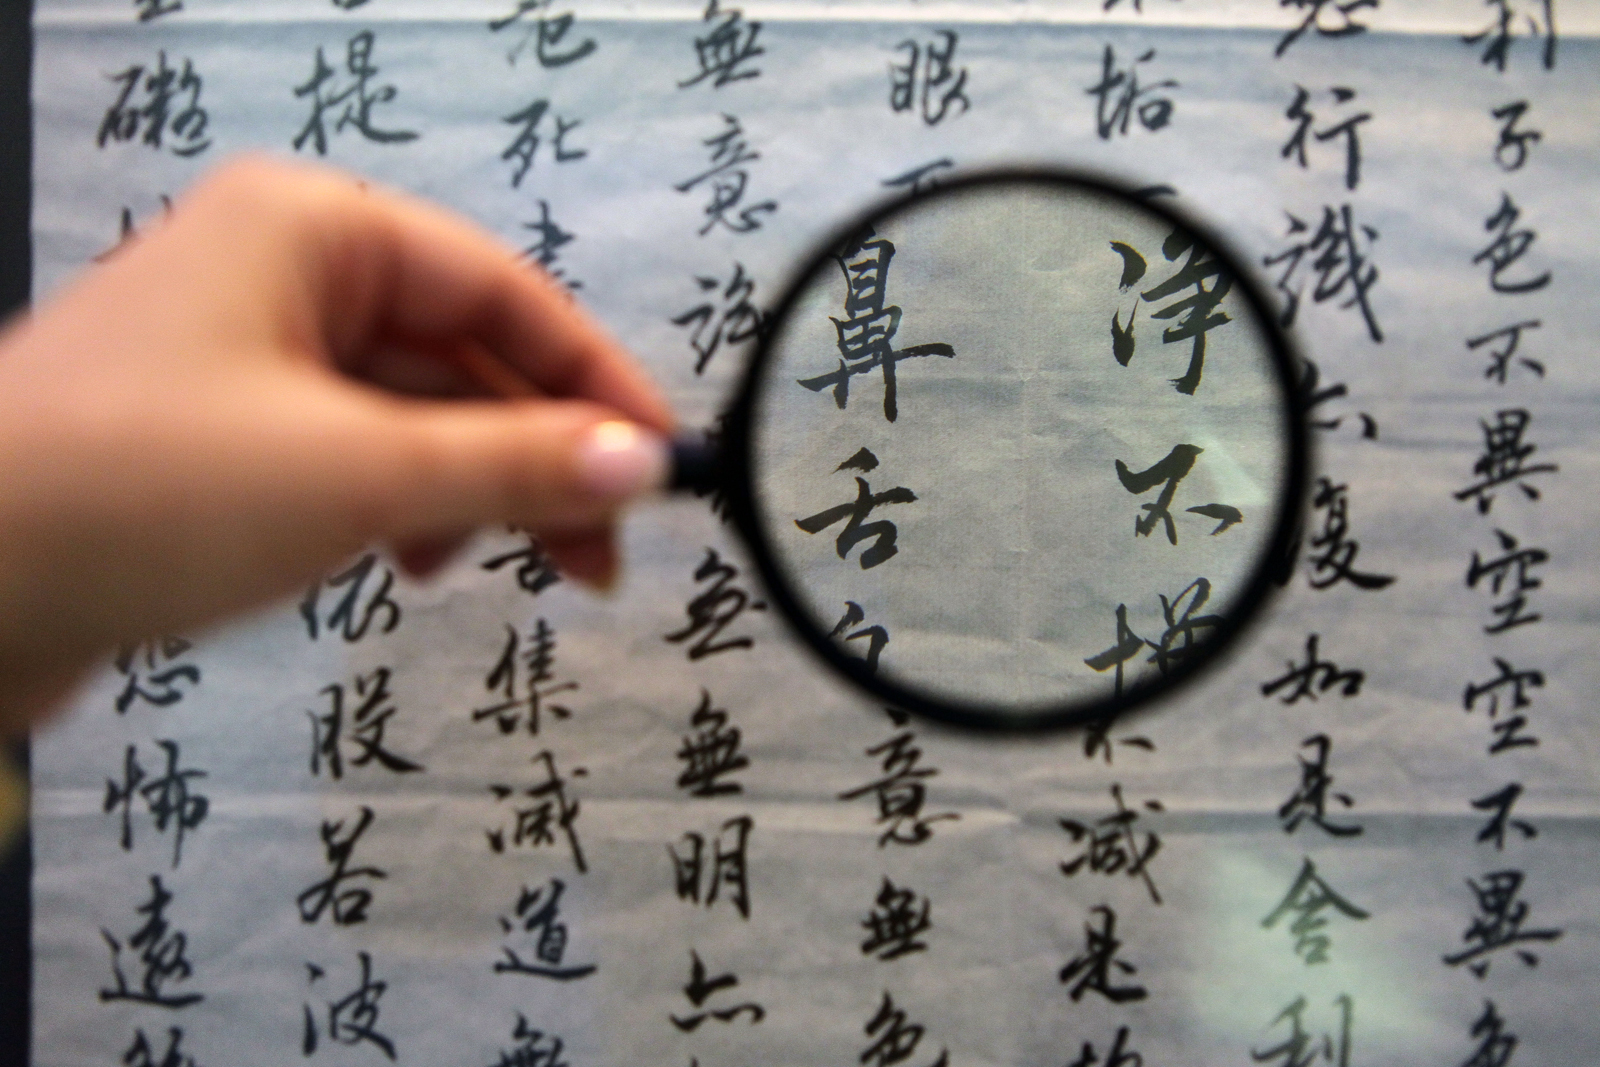 利子色不異空空不異色
行識亦復如是舍利
垢不淨不增不減是故
眼耳鼻舌身意無色
無意識無無明亦
老死盡苦集滅道無
提依般若波
礙恐怖遠